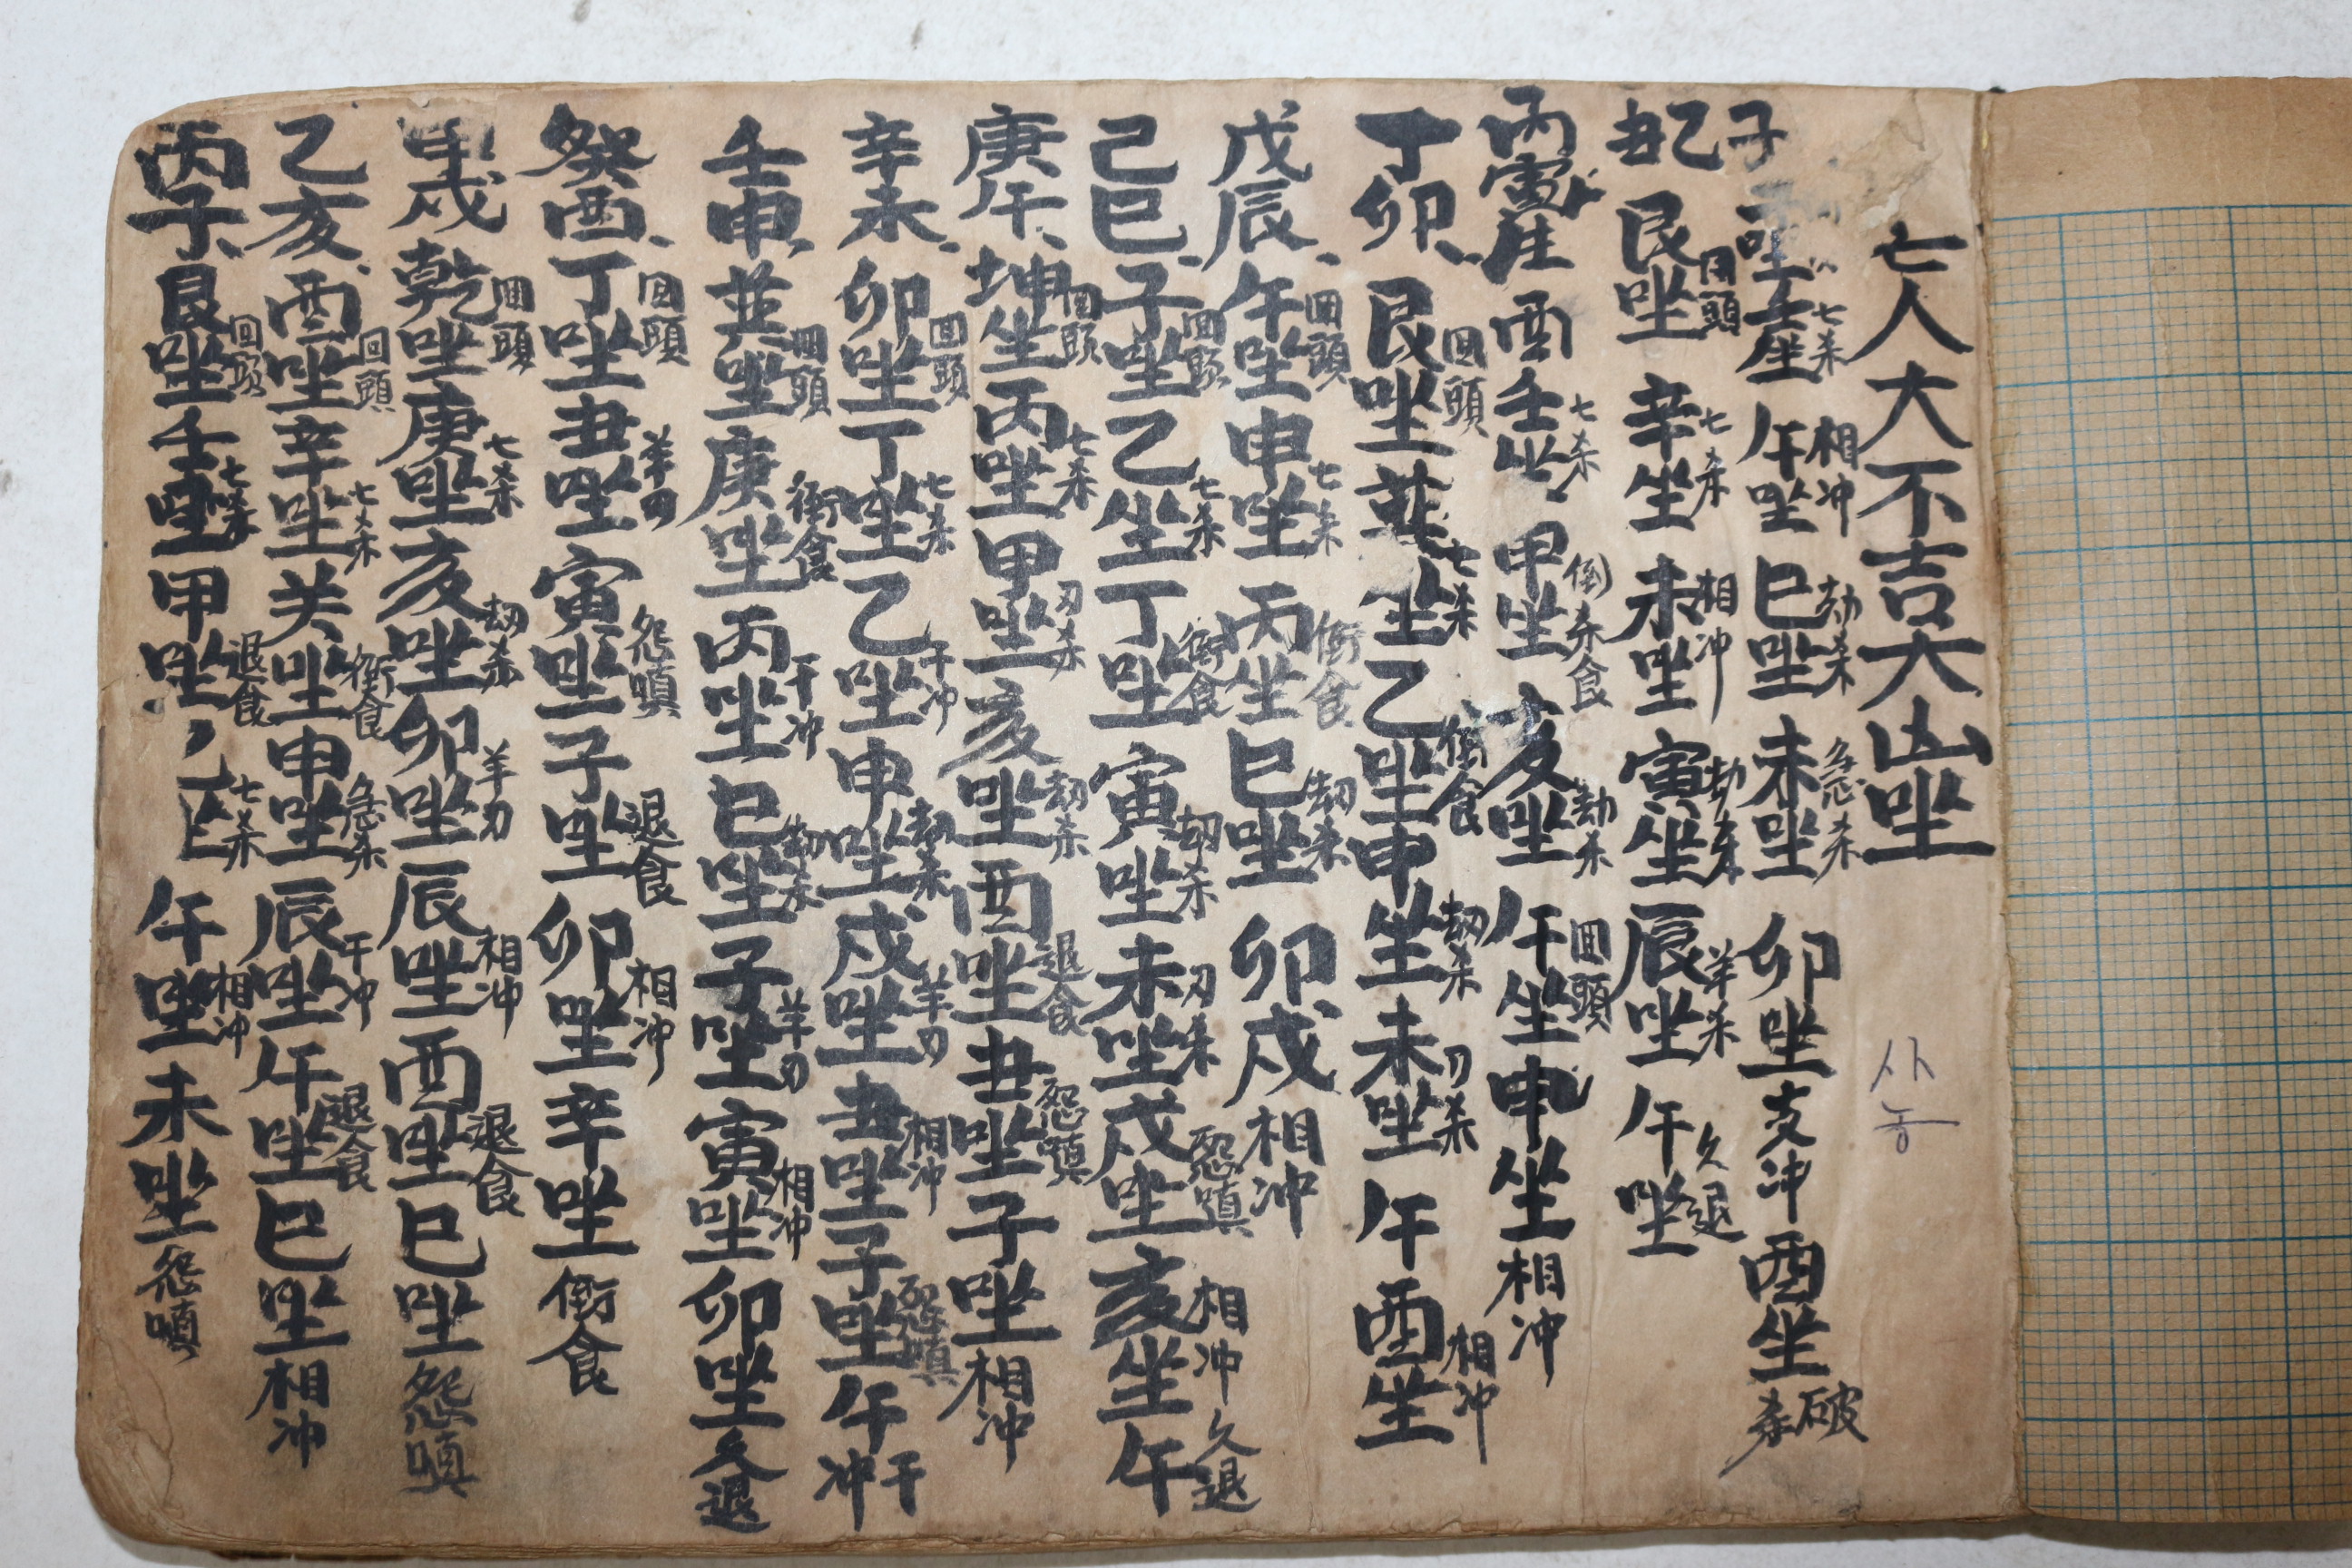 亡人大不吉大凶坐
사농
子 子坐 壬座七杀 午坐相冲 巳坐劫杀 未坐急杀 卯坐支冲 酉坐破杀
乙丑 艮坐回頭 辛坐七杀 未坐相冲 寅坐劫杀 辰坐羊杀 午坐久退
丙寅生 酉 壬坐七杀 甲坐倒食 亥坐劫杀 午坐回頭 申坐相冲
丁卯 艮坐回頭 坐七杀 乙坐倒食 申坐劫杀 未坐刃杀 午酉坐相冲
戊辰 午坐回頭 申坐七杀 丙坐倒食 巳坐劫杀 卯戌相冲
己巳 子坐回頭 乙坐七杀 丁坐倒食 寅坐劫杀 未坐刃杀 戌坐怨嗔 亥坐相冲 午久退
庚午 坤坐回頭 丙坐七杀 甲坐刃杀 亥坐劫杀 酉坐退食 丑坐怨嗔 子坐相冲
辛未 卯坐回頭 丁坐七杀 乙坐干冲 申坐劫杀 戌坐羊刃 丑坐相冲 子坐怨嗔 午干冲
壬申 坐回頭 庚坐倒食 丙坐干冲 巳坐劫杀 子坐羊刃 寅坐相冲 卯坐久退
癸酉 丁坐回頭 丑坐羊刃 寅坐怨嗔 子坐退食 卯坐相冲 辛坐倒食
甲戌 乾坐回頭 庚坐七杀 亥坐劫杀 卯坐羊刃 辰坐相冲 酉坐退食 巳坐怨嗔
乙亥 酉坐回頭 辛坐七杀 坐倒食 申坐急杀 辰坐干冲 午坐退食 巳坐相冲
丙子 艮坐回頭 壬坐七杀 甲坐退食 七杀 午坐相冲 未坐怨嗔